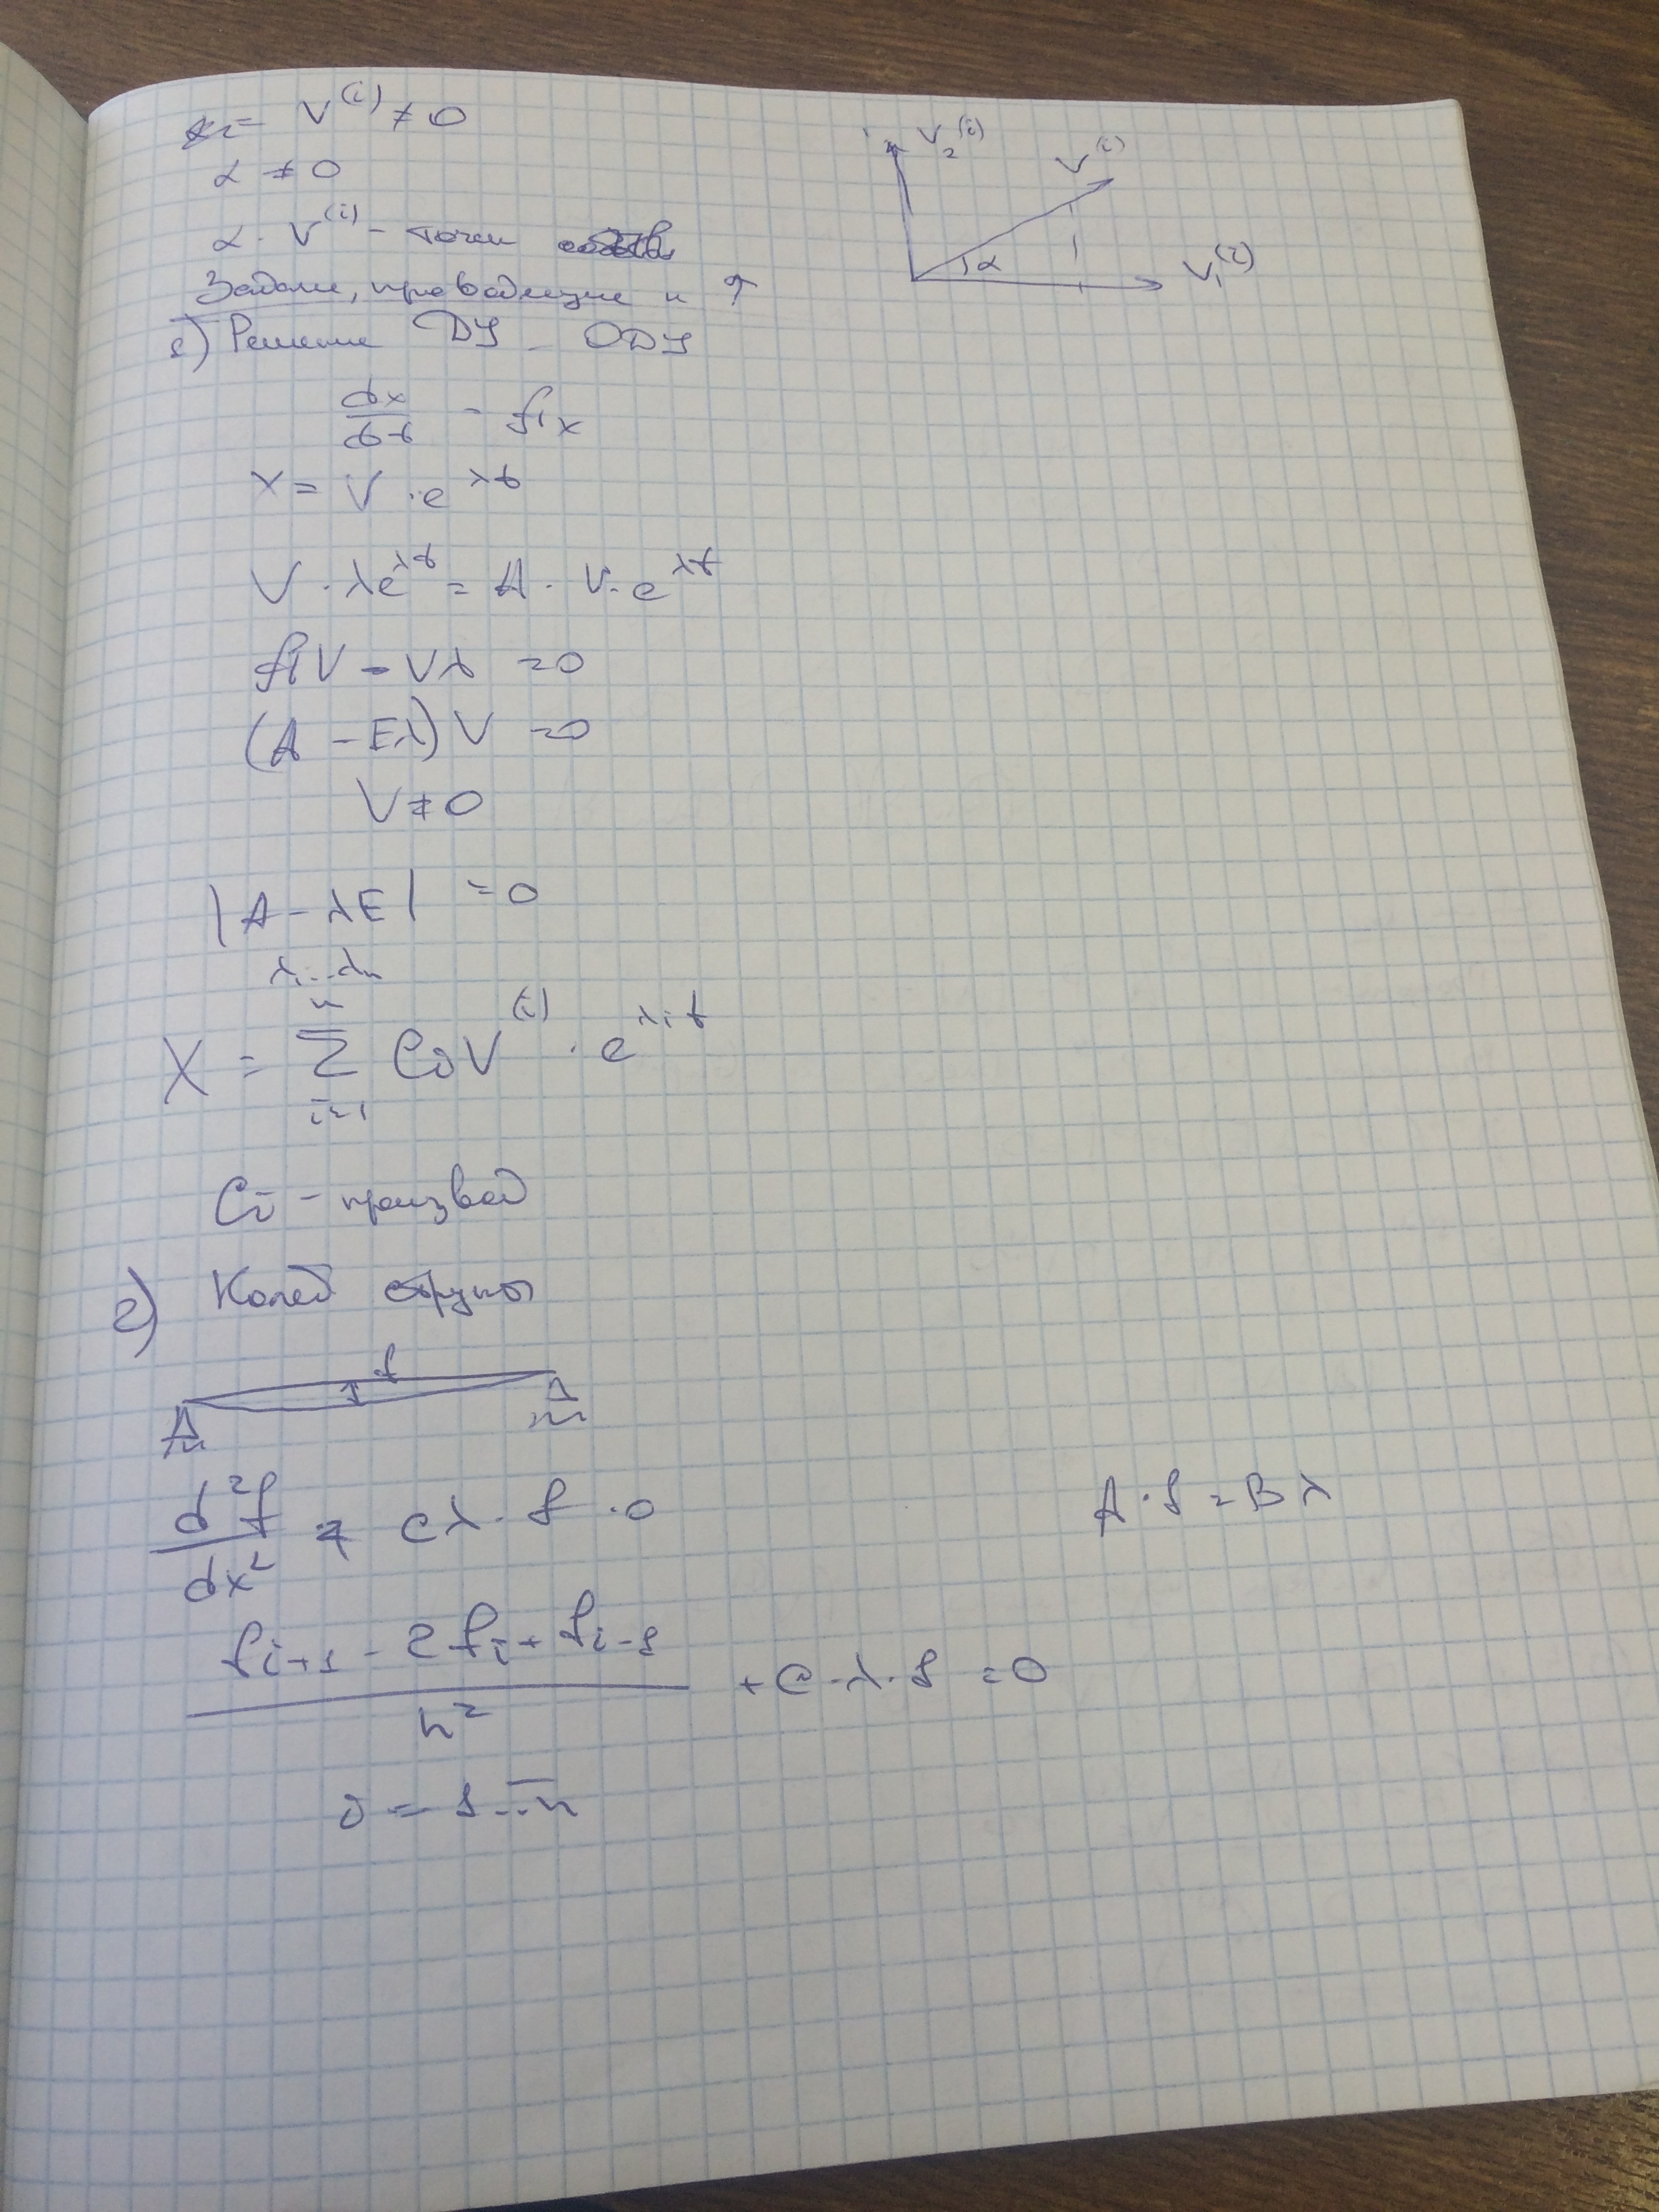 V^(i) ≠ 0
α ≠ 0
α · V^(i) - точки
V_2^(i) V^(i)
α V_1^(i)
Задачи, приводящие к ↑
1) Решение ДУ - ОДУ
dx/dt = Ax
X = V · e^λt
V · λe^λt = A · V · e^λt
AV - Vλ = 0
(A - Eλ) V = 0
V ≠ 0
|A - λE| = 0
λ_1...λ_n
X = Σ_{i=1}^{n} C_i V^(i) · e^{λ_i t}
C_i - произвол
2) Колеб струны
f
d²f/dx² + cλ · f · 0
A · f = Bλ
(f_{i+1} - 2f_i + f_{i-1})/h² + c · λ · f = 0
i = 1...n